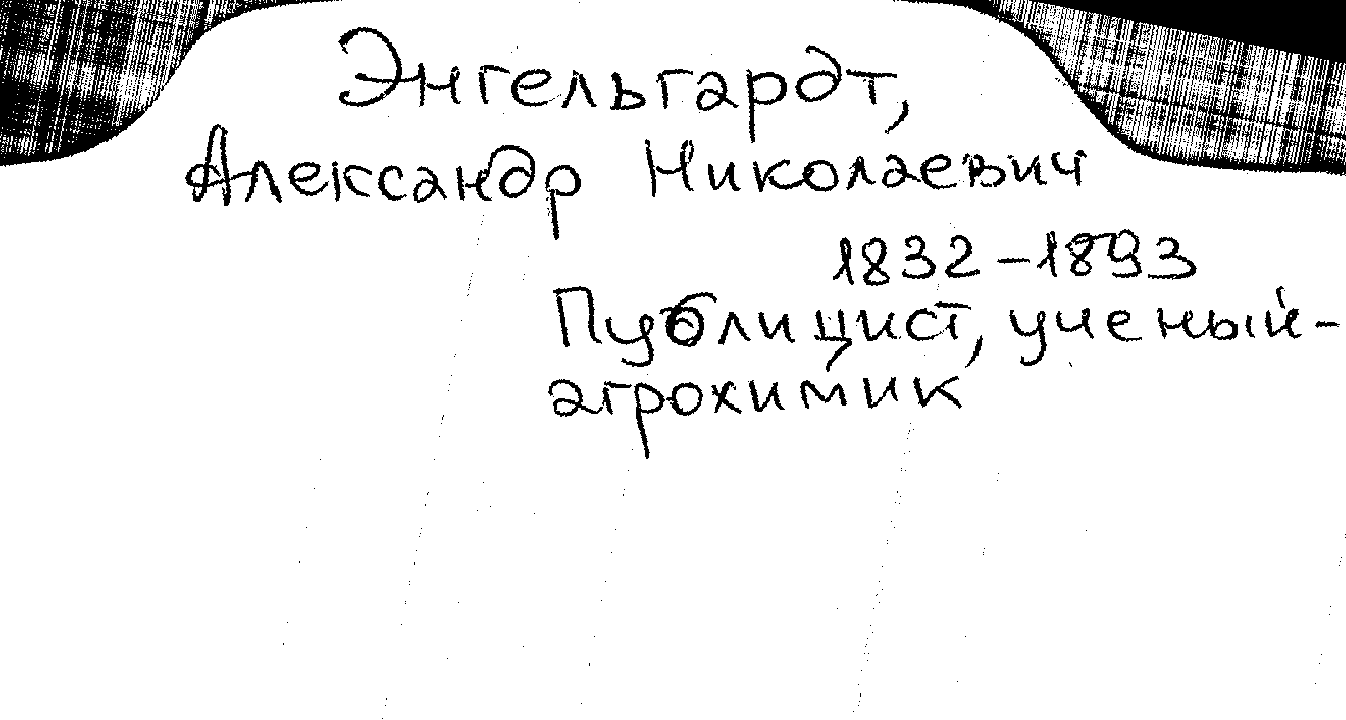 Энгельгардт,
Александр Николаевич
1832-1893
Публицист, ученый-
агрохимик